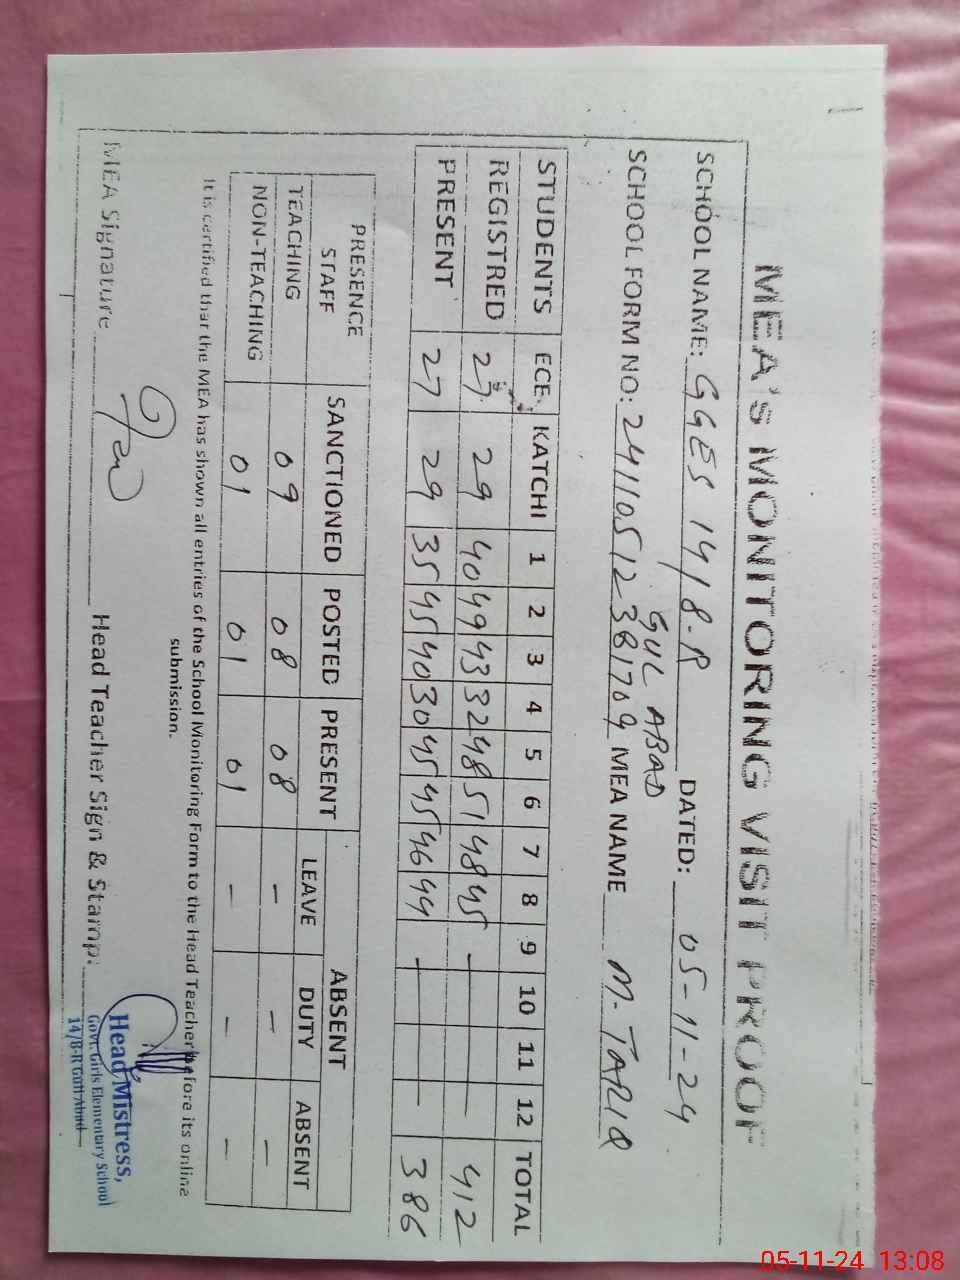 MEA'S MONITORING VISIT PROOF
SCHOOL NAME: GGES 14/8-R DATED: 05-11-24
GUL ABAD
SCHOOL FORM NO: 24110512381709 MEA NAME M. TARIQ
STUDENTS ECE KATCHI 1 2 3 4 5 6 7 8 9 10 11 12 TOTAL
REGISTRED 27 29 40 49 43 32 48 51 48 45 - 412
PRESENT 27 29 35 45 40 30 45 45 46 44 - 386
PRESENCE STAFF SANCTIONED POSTED PRESENT ABSENT
LEAVE DUTY ABSENT
TEACHING 09 08 08 - - -
NON-TEACHING 01 01 01 - - -
It is certified that the MEA has shown all entries of the School Monitoring Form to the Head Teacher before its online
submission.
MEA Signature Head Teacher Sign & Stamp:
Head Mistress,
Govt. Girls Elementary School
14/8-R Gull Abad
05-11-24 13:08